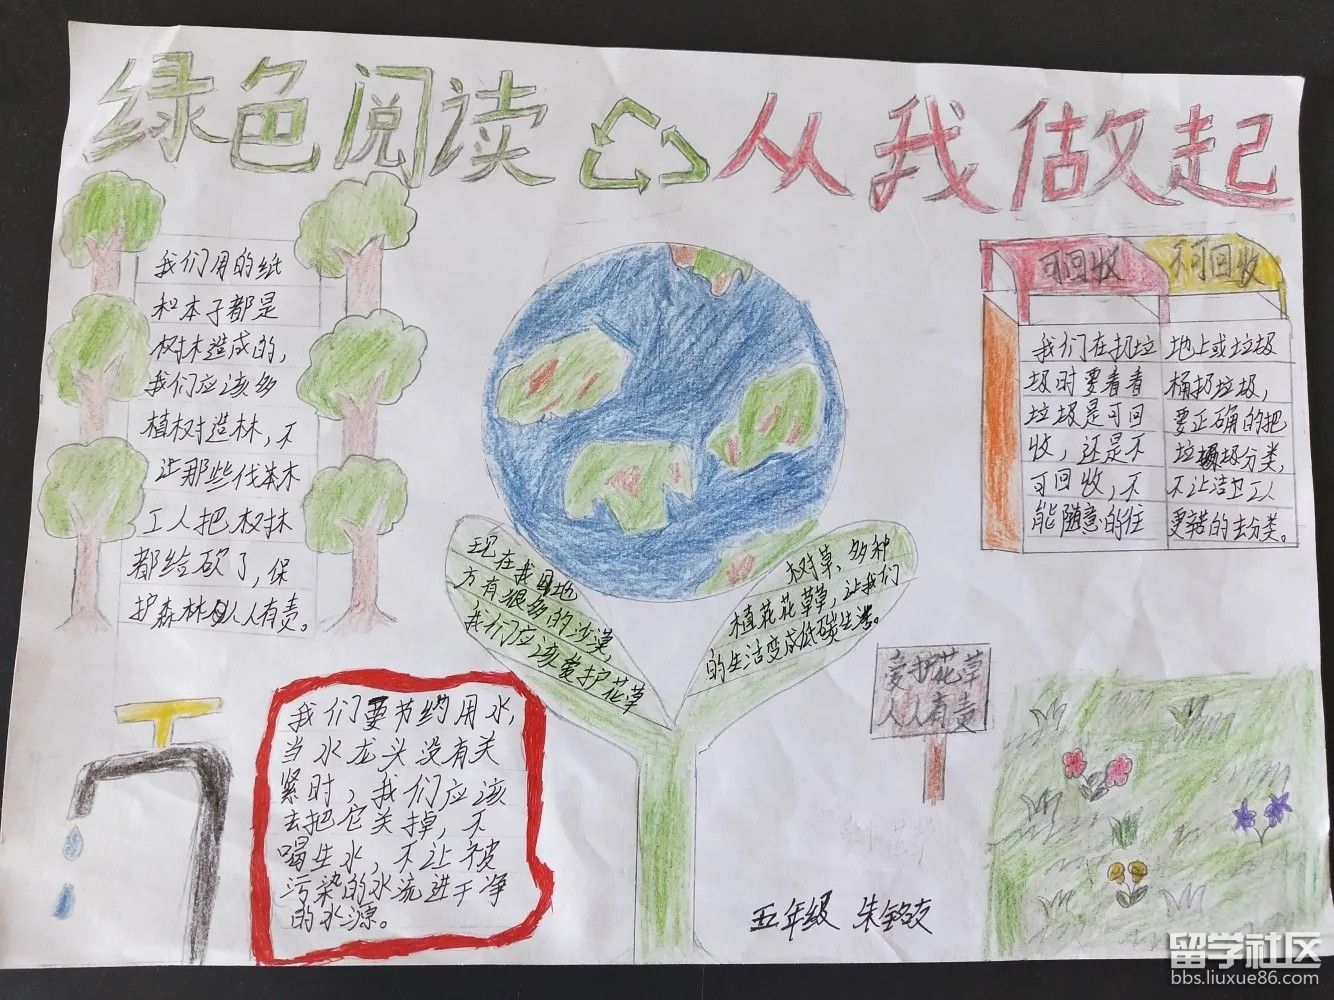 绿色阅读 从我做起
我们用的纸
和本子都是
树木造成的，
我们应该多
植树造林，不
让那些伐木
工人把树林
都给砍了，保
护森林人人有责。
可回收
不可回收
我们在扔垃
圾时要看看
垃圾是可回
收，还是不
可回收，不
能随意的往
地上或垃圾
桶扔垃圾，
要正确的把
垃圾分类，
不让洁卫工人
更辛苦的去分类。
现在我国地
方有很多的沙漠，
我们应该爱护花草
树草、多种
植花花草草，让我们
的生活变成低碳生活。
爱护花草
人人有责
我们要节约用水，
当水龙头没有关
紧时，我们应该
去把它关掉，不
喝生水，不让被
污染的水流进干净
的水源。
五年级 朱
留学社区
bbs.liuxue86.com